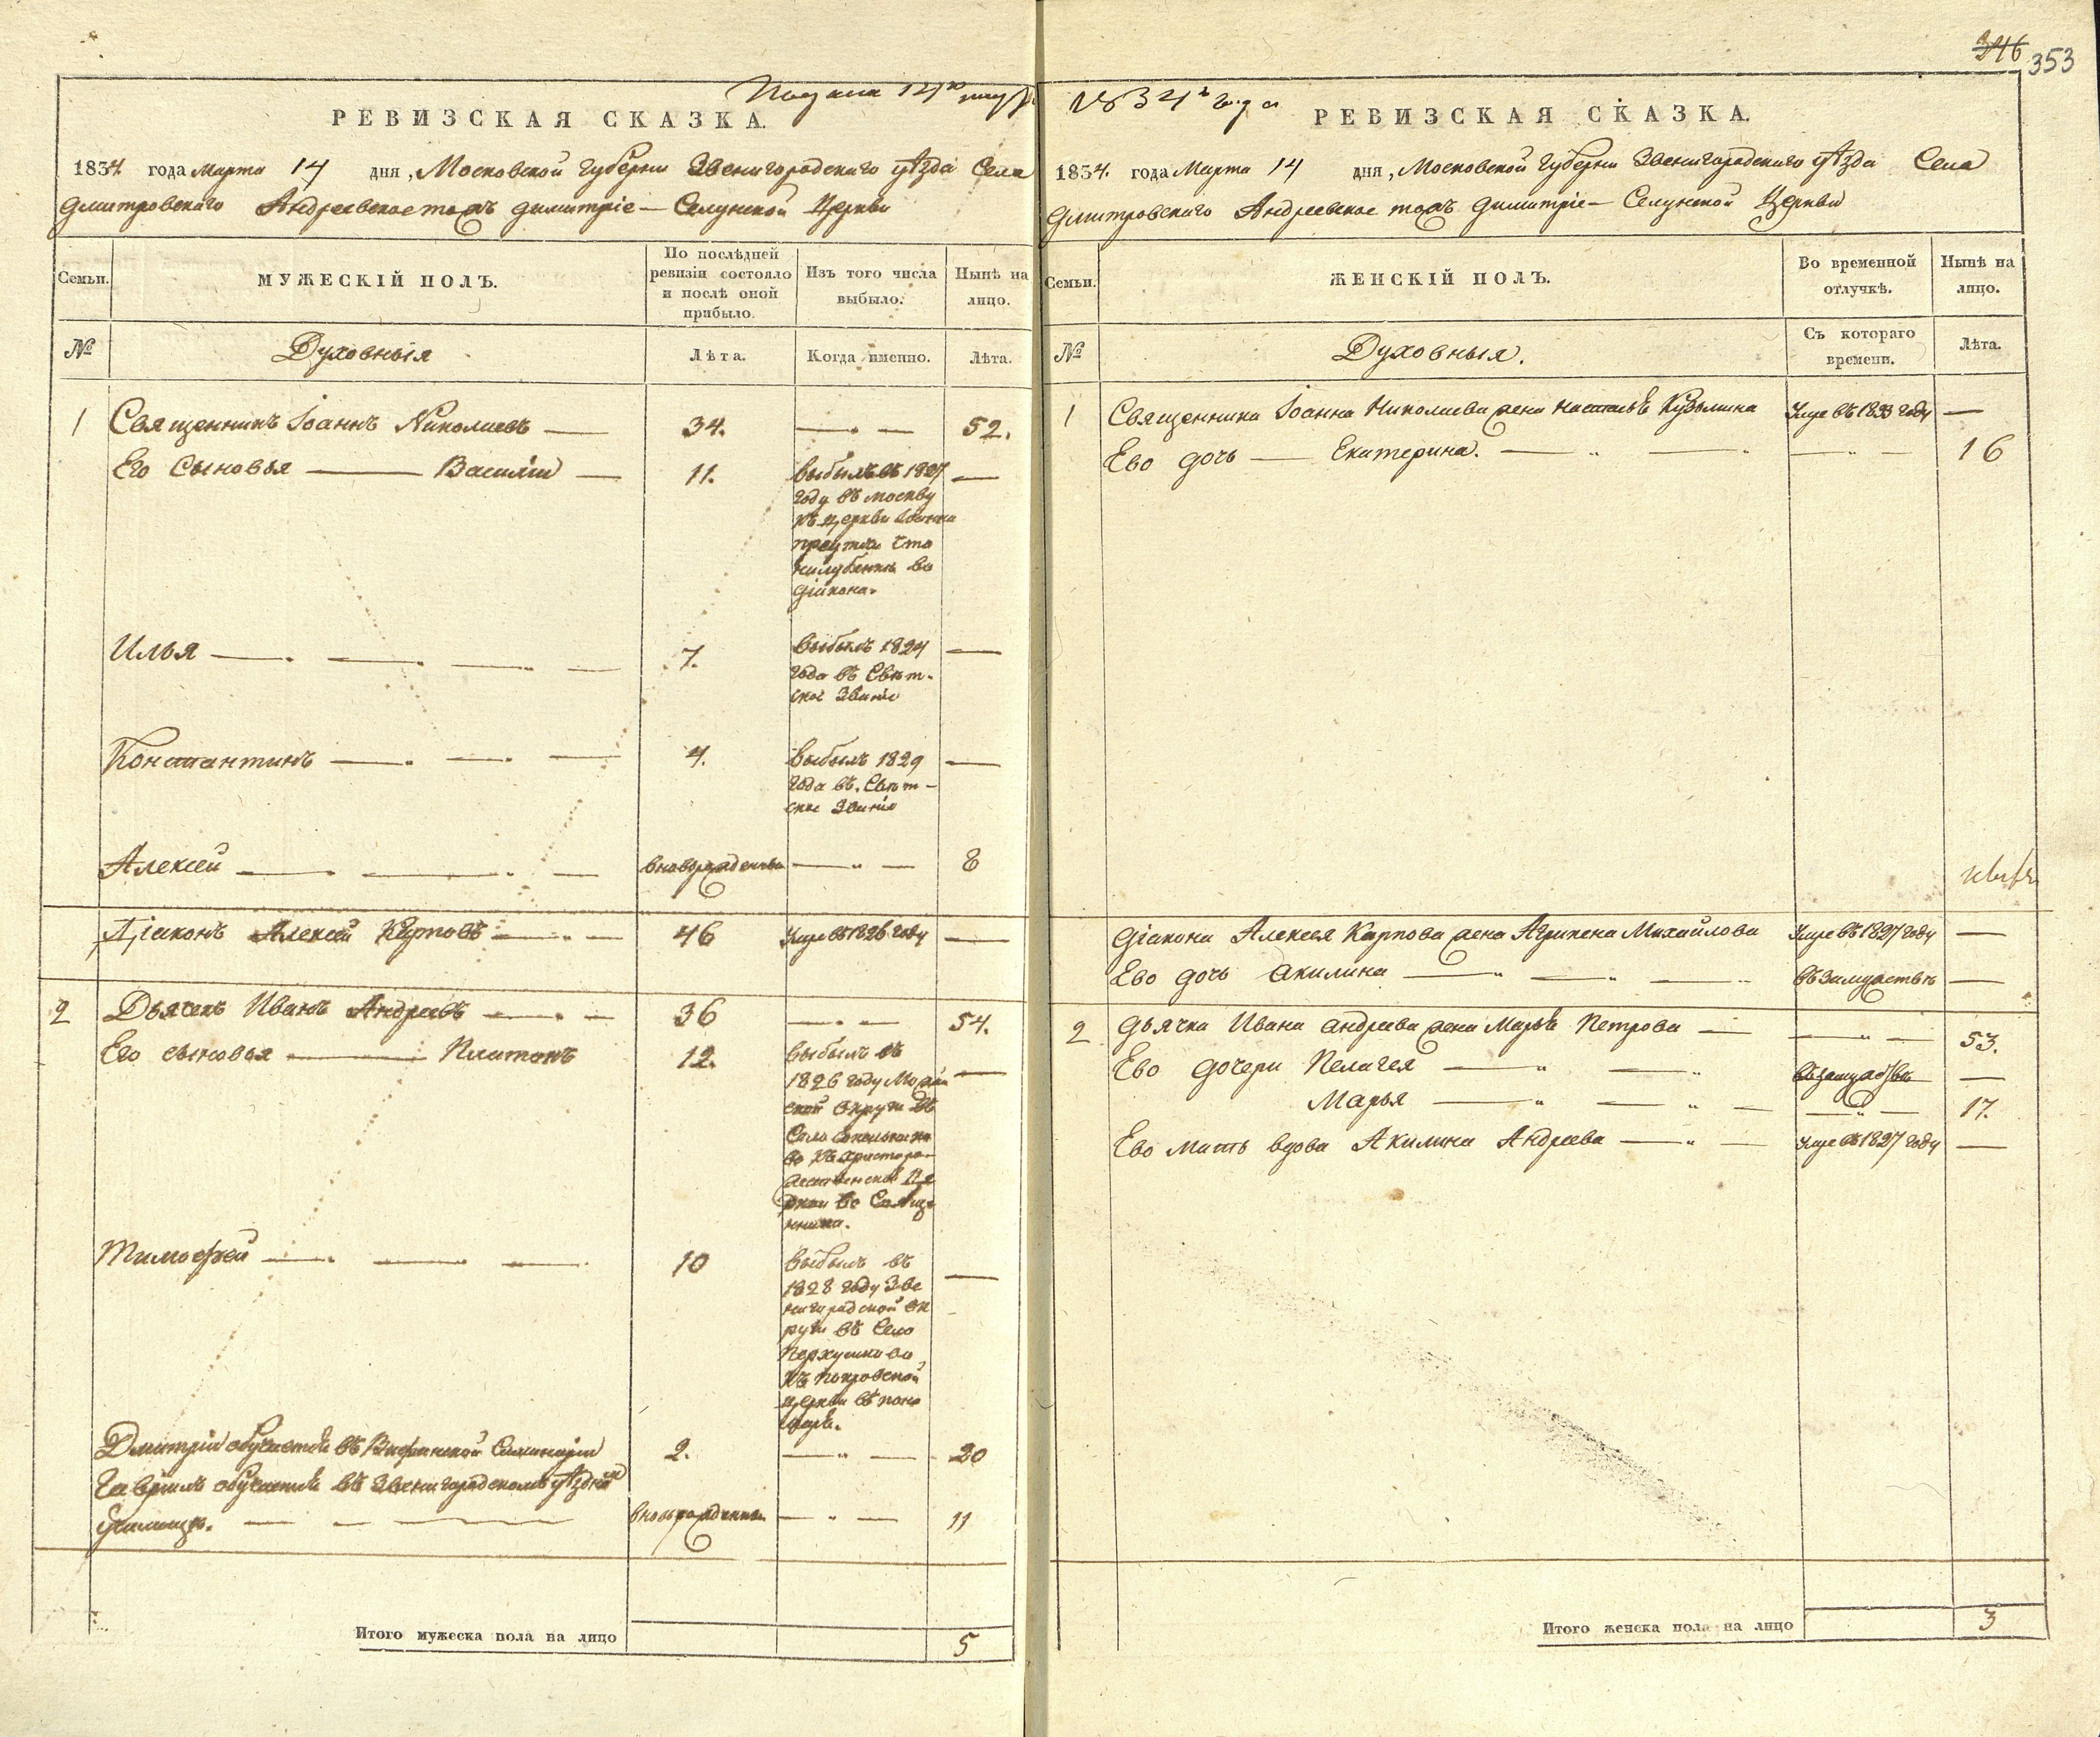 346 353
Подана 12го
1834го года
РЕВИЗСКАЯ СКАЗКА.
1834 года Марта 14 дня, Московской Губернии Звенигородскаго уѣзда Села
Дмитровскаго Андреевское тожъ Димитріе-Селунской Церкви
Семьи.
МУЖЕСКІЙ ПОЛЪ.
По послѣдней
ревизіи состояло
и послѣ оной
прибыло.
Изъ того числа
выбыло.
Нынѣ на
лицо.
№
Духовныя
Лѣта.
Когда именно.
Лѣта.
1 Священникъ Іоаннъ Николаевъ — 34. — 52.
Его Сыновья — Василій — 11. выбылъ въ 1827 —
году въ Москву
къ церкви Іоанна
предтечи что
во
діакона.
Илья — 7. выбылъ 1824 —
года въ Свѣт-
ское Званіе
Константинъ — 4. выбылъ 1829 —
года въ Свѣт-
ское Званіе
Алексей — вновьрожденны — 8
Діаконъ Алексей Карповъ — 46 Умре въ 1826 году —
2 Дьячекъ Иванъ Андреевъ — 36 — 54.
Его сыновья — Платонъ 12. выбылъ въ —
1826 году
ской округи въ
Село
во къ христоро-
жественской Це
ркви во Свяще
нника.
Тимофей — 10 выбылъ въ —
1828 году Зве
нигородской ок
руги въ Село
Перхушково
къ Покровской
церкви въ поно
маря.
Дмитрій обучается въ Вифанской Семинаріи 2. — 20
Гаврилъ обучается въ Звенигородскомъ уѣздном
училище. — вновьрожденны — 11
Итого мужеска пола на лицо 5
РЕВИЗСКАЯ СКАЗКА.
1834. года Марта 14 дня, Московской Губернии Звенигородскаго уѣзда Села
Дмитровскаго Андреевское тожъ Димитріе-Селунской Церкви
Семьи.
ЖЕНСКІЙ ПОЛЪ.
Во временной
отлучкѣ.
Нынѣ на
лицо.
№
Духовныя.
Съ котораго
времени.
Лѣта.
1 Священника Іоанна Николаева жена Кузьмина Умре въ 1833 году —
Ево дочь — Екатерина. — 16
Діакона Алексея Карпова жена Агрипена Михайлова Умре въ 1827 году —
Ево дочь Акилина — въ Замужствѣ —
2 Дьячка Ивана Андреева жена Марья Петрова — 53.
Ево дочери Пелагея — въ замужствѣ —
Марья — 17.
Ево мать вдова Акилина Андреева — Умре въ 1827 году —
Итого женска пола на лицо 3